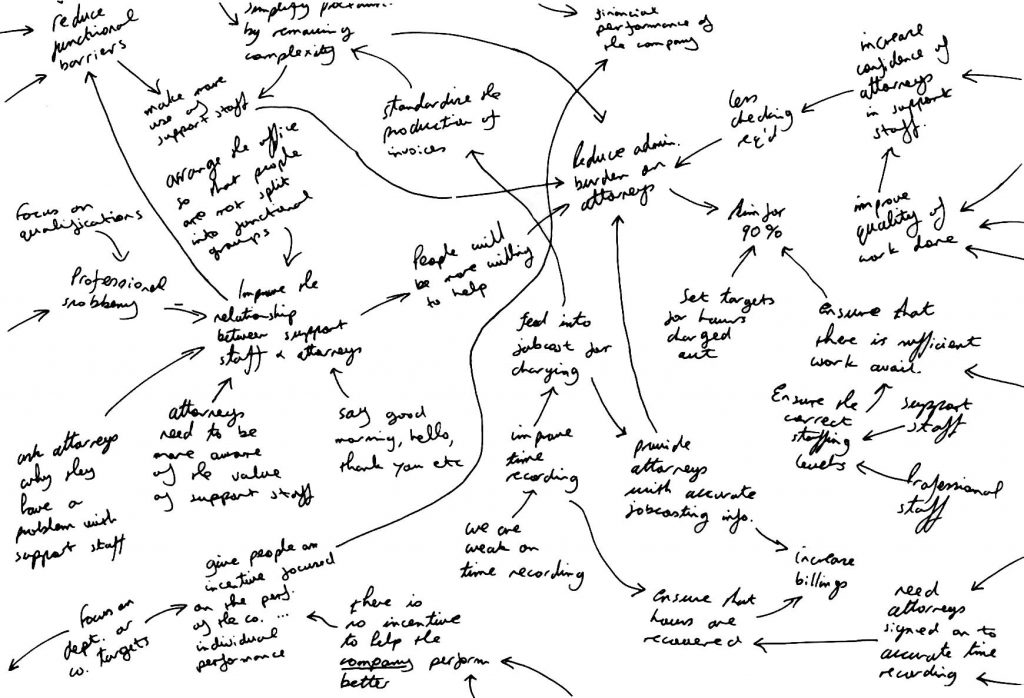 reduce
functional
barriers
simplify
by removing
complexity
financial
performance of
the company
increase
confidence of
attorneys
in support
staff.
make more
use of
support staff
standardize the
production of
invoices
less
checking
req'd
arrange the office
so that people
are not split
into functional
groups
Reduce admin.
burden on
attorneys
Focus on
qualifications
Aim for
90%
improve
quality of
work done
People will
be more willing
to help
Professional
snobbery
Improve the
relationship
between support
staff & attorneys
Set targets
for hours
charged
out
ensure that
there is sufficient
work avail.
feed into
jobcost for
charging
Ensure the
correct
staffing
levels
support
staff
Professional
staff
ask attorneys
why they
have a
problem with
support staff
attorneys
need to be
more aware
of the value
of support staff
say good
morning, hello,
thank you etc
improve
time
recording
provide
attorneys
with accurate
jobcosting info.
we are
weak on
time recording
increase
billings
give people an
incentive focused
on the perf.
of the co. ...
individual
performance
Focus on
dept. or
co. targets
there is
no incentive
to help the
company perform
better
ensure that
hours are
recovered
need
attorneys
signed on to
accurate time
recording